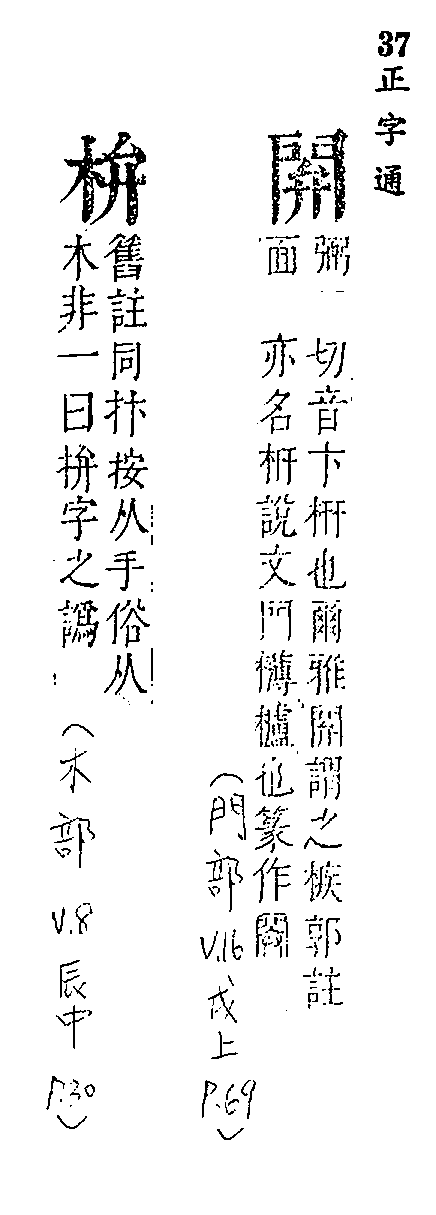 37正字通
閞
弼 切音卞枅也爾雅閞謂之槉郭註
面 亦名枅說文門欂櫨也篆作
(門部 V.16、戌上 P.69)
㭓
舊註同抃按从手俗从
木非一曰拚字之譌
(木部 V.8 辰中 P.30)